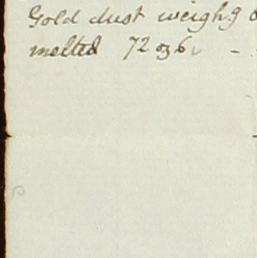 Gold dust weigh.g
melted 72 oz 6